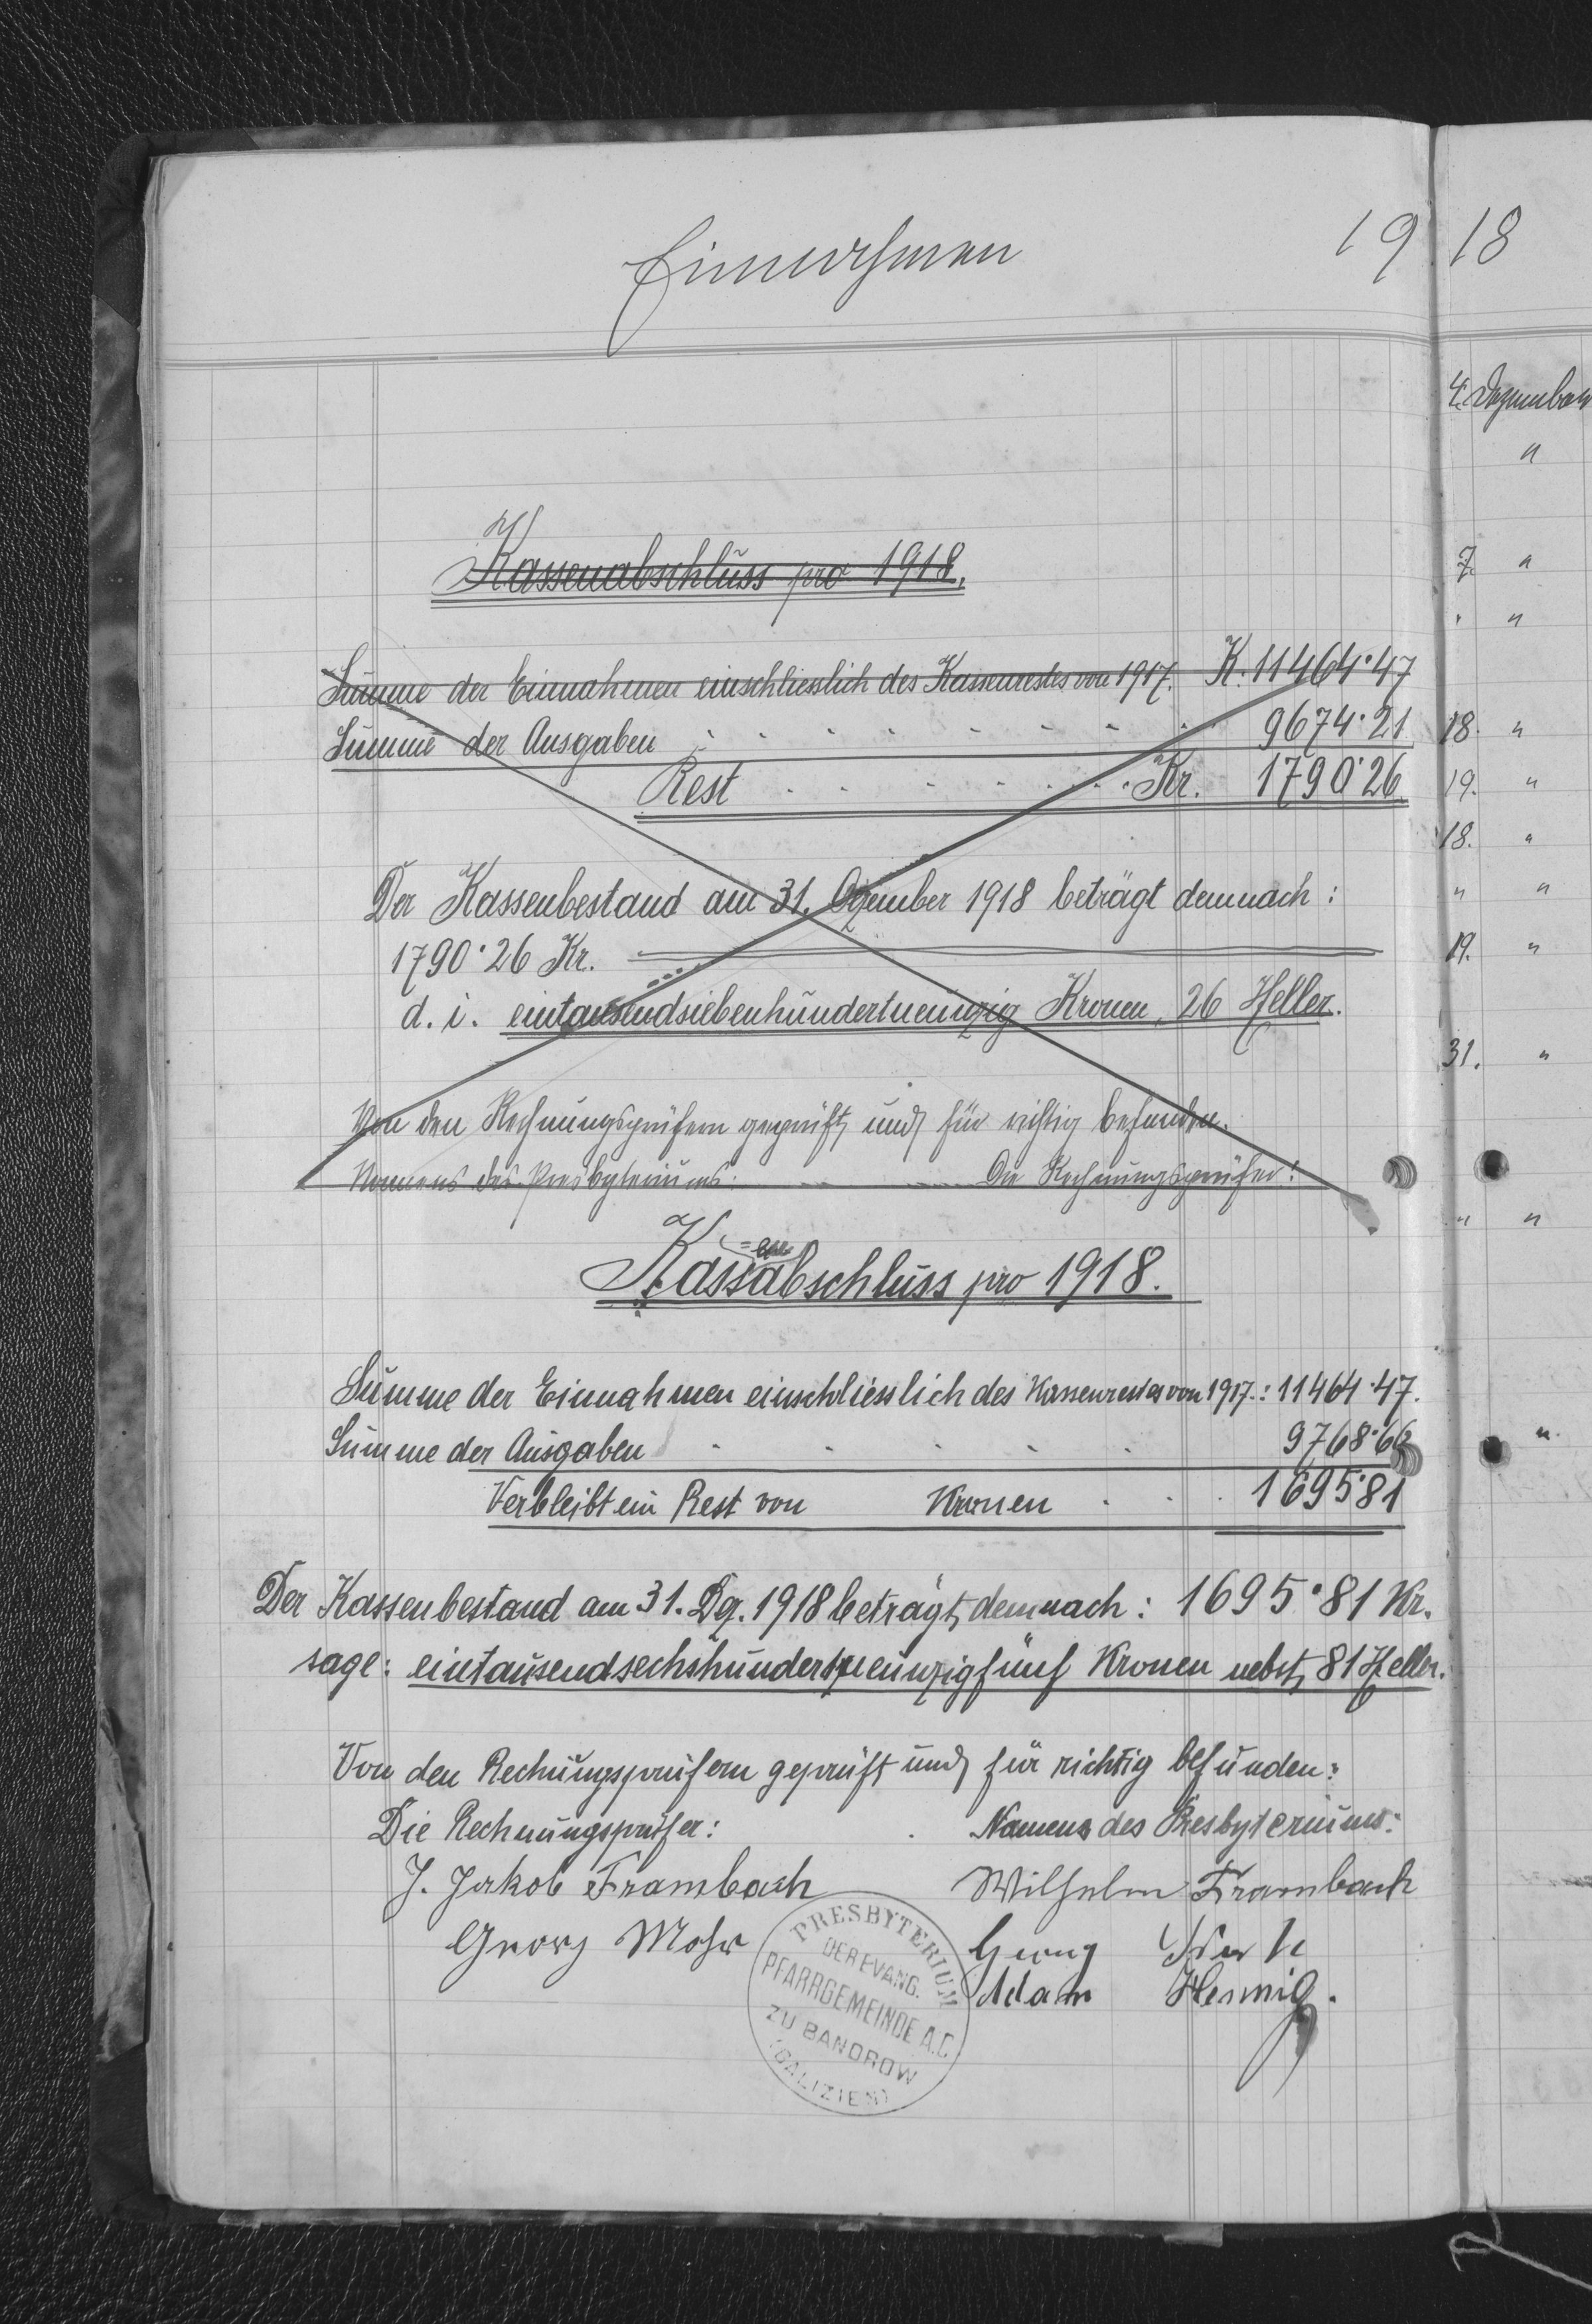 Einnahmen 19 18
Kassenabschluss pro 1918.
Summe der Einnahmen einschliesslich des Kassenrestes von 1917. K. 11464·47
Summe der Ausgaben . . . . . . . . 9674·21
Rest . . . . . . . Kr. 1790·26
Der Kassenbestand am 31. Dezember 1918 beträgt demnach:
1790·26 Kr.
d. i. eintausendsiebenhundertneunzig Kronen, 26 Heller.
Von den Rechnungsprüfern geprüft und für richtig befunden.
Namens des Presbyteriums: Die Rechnungsprüfer:
Kassenabschluss pro 1918.
Summe der Einnahmen einschliesslich des Kassenrestes von 1917.: 11464·47.
Summe der Ausgaben . . . . . 9768·66
Verbleibt ein Rest von Kronen . . . 1695·81
Der Kassenbestand am 31. Dez. 1918 beträgt demnach: 1695·81 Kr.
sage: eintausendsechshundertneunzigfünf Kronen nebst 81 Heller.
Von den Rechnungsprüfern geprüft und für richtig befunden:
Die Rechnungsprüfer: Namens des Presbyteriums:
J. Jakob Frambach Wilhelm Frambach
Georg Mohr Georg
Adam Hennig.
PRESBYTERIUM
DER EVANG.
PFARRGEMEINDE A.C.
ZU BANDROW
(GALIZIEN)
4. Dezember
"
7. "
" "
18. "
19. "
18. "
" "
19. "
31. "
" "
"